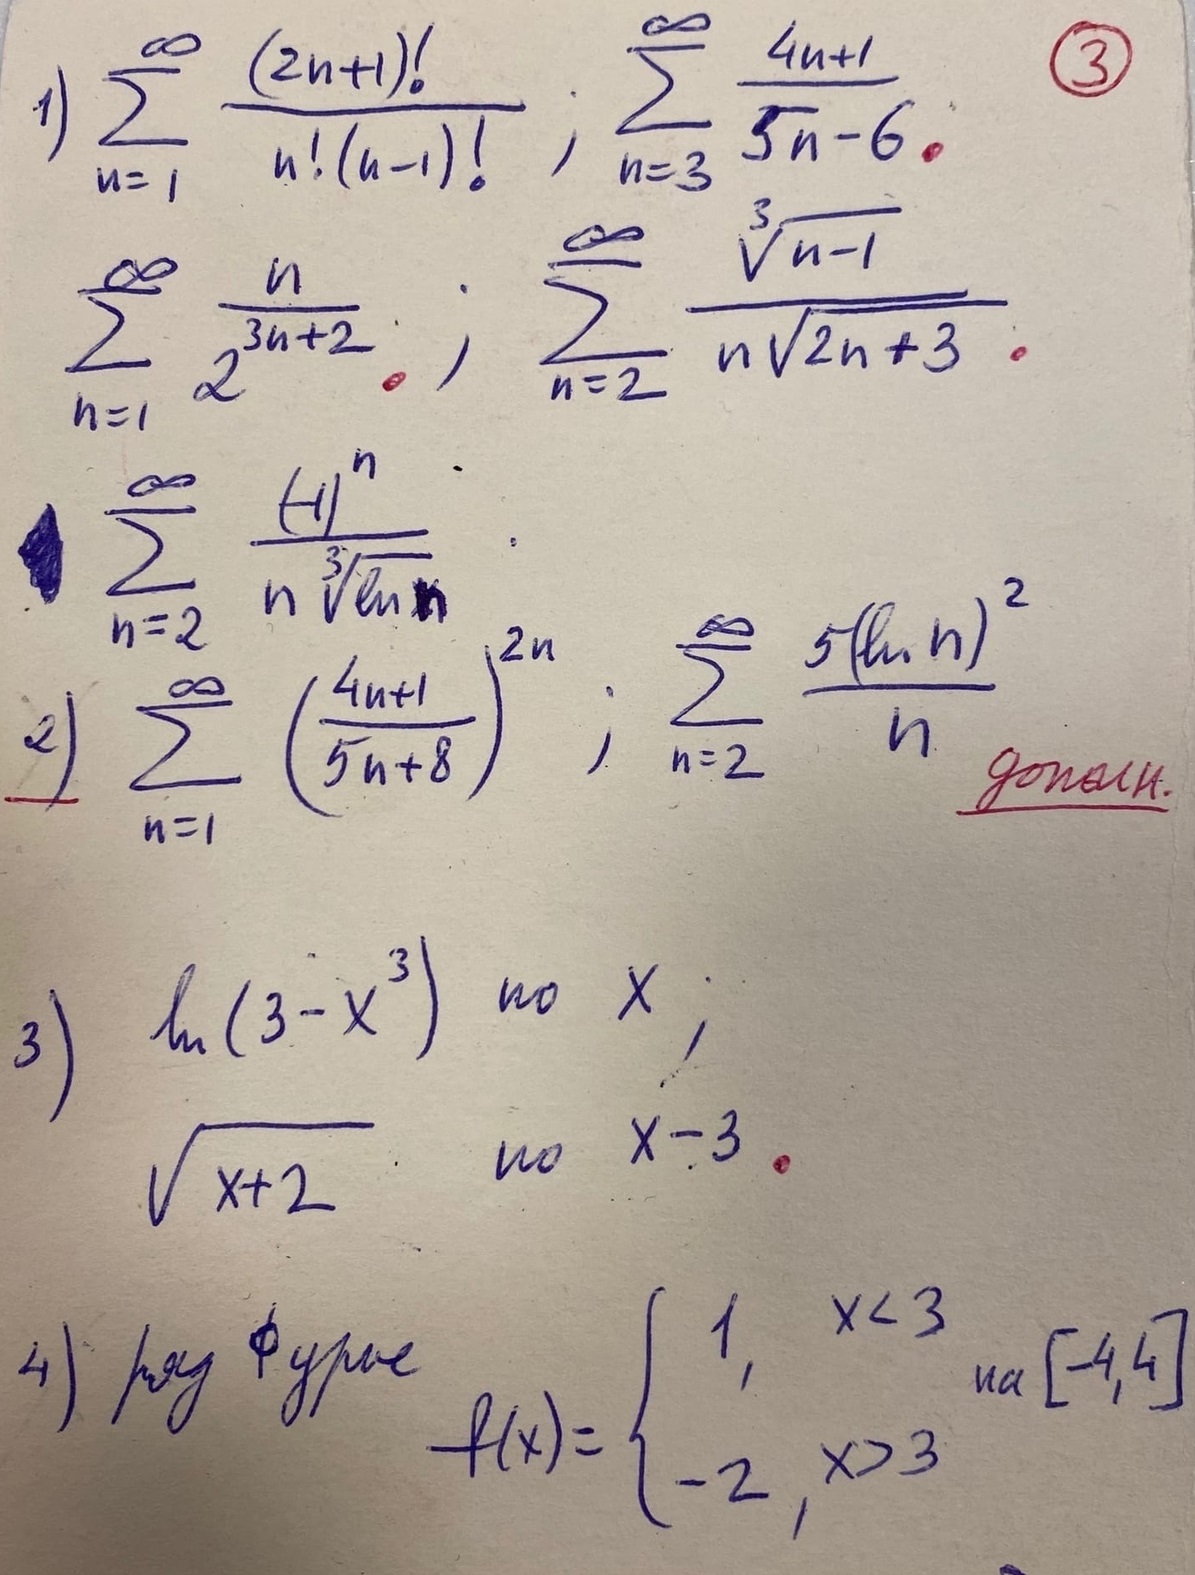 1) ∑_{n=1}^{∞} (2n+1)! / (n!(n-1)!) ; ∑_{n=3}^{∞} (4n+1) / (5n-6). ③
∑_{n=1}^{∞} n / 2^{3n+2}. ; ∑_{n=2}^{∞} ∛(n-1) / (n√(2n+3)).
∑_{n=2}^{∞} (-1)^n / (n ∛(ln n))
2) ∑_{n=1}^{∞} ((4n+1) / (5n+8))^{2n} ; ∑_{n=2}^{∞} 5(ln n)^2 / n
дополн.
3) ln(3-x^3) по x ;
√(x+2) по x-3.
4) ряд Фурье f(x) = { 1, x<3 ; -2, x>3 на [-4,4]